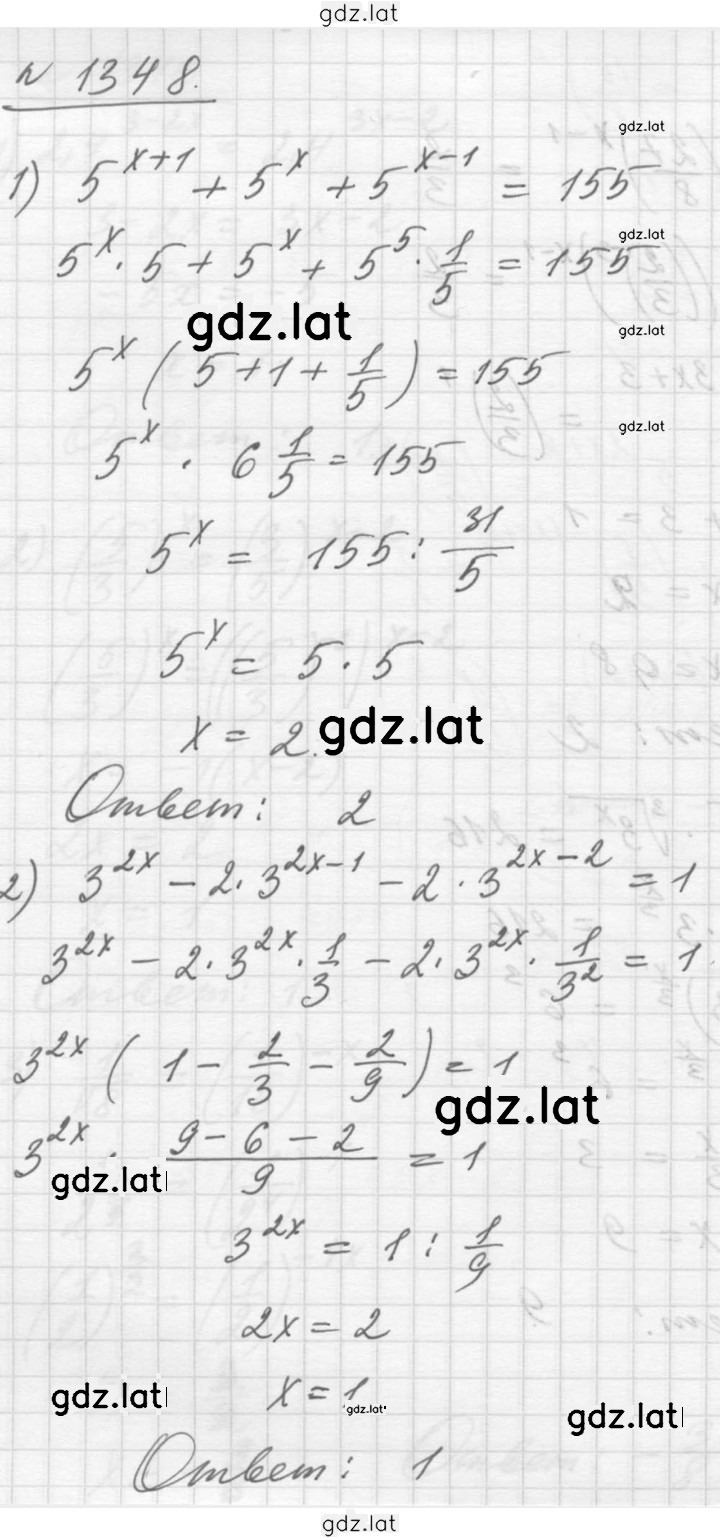 gdz.lat
№ 1348.
gdz.lat
1) 5^{x+1} + 5^x + 5^{x-1} = 155
gdz.lat
5^x · 5 + 5^x + 5^5 · 1/5 = 155
gdz.lat gdz.lat
5^x (5+1+1/5) = 155
gdz.lat
5^x · 6 1/5 = 155
5^x = 155 : 31/5
5^x = 5 · 5
x = 2. gdz.lat
Ответ: 2
2) 3^{2x} - 2 · 3^{2x-1} - 2 · 3^{2x-2} = 1
3^{2x} - 2 · 3^{2x} · 1/3 - 2 · 3^{2x} · 1/3^2 = 1.
3^{2x} (1 - 2/3 - 2/9) = 1
gdz.lat
3^{2x} · (9-6-2)/9 = 1
gdz.lat
3^{2x} = 1 : 1/9
2x = 2
gdz.lat x = 1
gdz.lat gdz.lat
Ответ: 1
gdz.lat